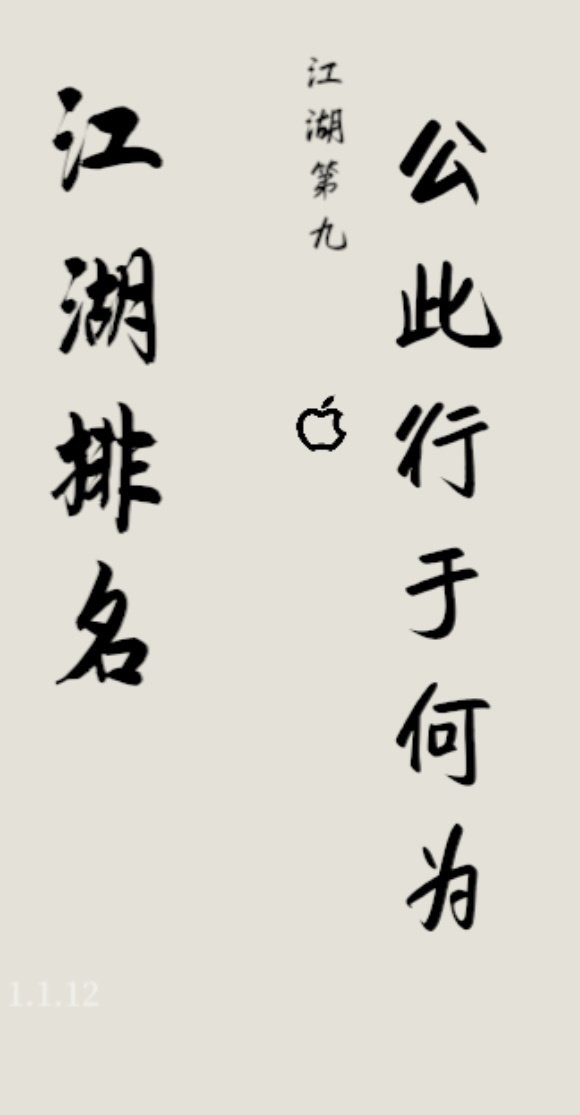 公此行于何为
江湖第九
江湖排名
1.1.12